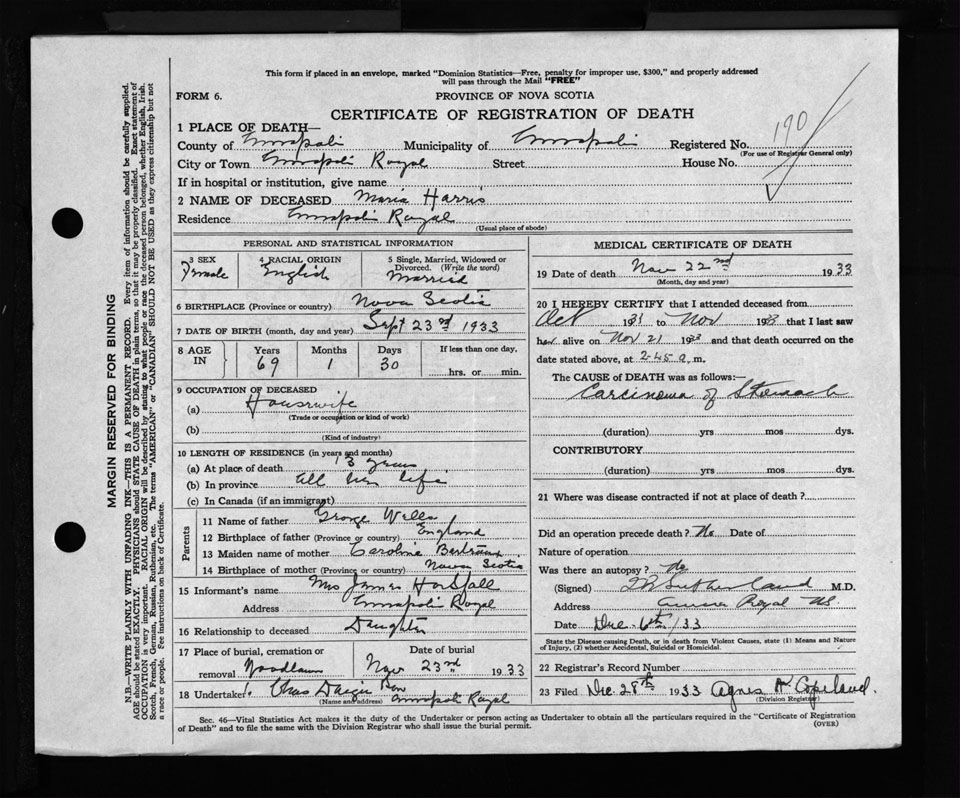 This form if placed in an envelope, marked "Dominion Statistics—Free, penalty for improper use, $300," and properly addressed
will pass through the Mail "FREE"
FORM 6.
PROVINCE OF NOVA SCOTIA
CERTIFICATE OF REGISTRATION OF DEATH
190
1 PLACE OF DEATH—
County of Annapolis Municipality of Annapolis Registered No.
(For use of Registrar General only)
City or Town Annapolis Royal Street House No.
If in hospital or institution, give name
2 NAME OF DECEASED Maria Harris
Residence Annapolis Royal
(Usual place of abode)
PERSONAL AND STATISTICAL INFORMATION
3 SEX Female
4 RACIAL ORIGIN English
5 Single, Married, Widowed or Divorced. (Write the word) Married
6 BIRTHPLACE (Province or country) Nova Scotia
7 DATE OF BIRTH (month, day and year) Sept 23rd 1933
8 AGE IN Years 69 Months 1 Days 30 If less than one day, hrs. or min.
9 OCCUPATION OF DECEASED
(a) Housewife
(Trade or occupation or kind of work)
(b)
(Kind of industry)
10 LENGTH OF RESIDENCE (in years and months)
(a) At place of death 13 years
(b) In province all her life
(c) In Canada (if an immigrant)
Parents
11 Name of father George Wells
12 Birthplace of father (Province or country) England
13 Maiden name of mother Caroline
14 Birthplace of mother (Province or country) Nova Scotia
15 Informant's name Mrs James Horsfall
Address Annapolis Royal
16 Relationship to deceased Daughter
17 Place of burial, cremation or removal Woodlawn
Date of burial Nov 23rd 1933
18 Undertaker Chas
(Name and address) Annapolis Royal
MEDICAL CERTIFICATE OF DEATH
19 Date of death Nov 22nd 1933
(Month, day and year)
20 I HEREBY CERTIFY that I attended deceased from
Oct 1933 to Nov 1933 that I last saw
her alive on Nov 21 1933 and that death occurred on the
date stated above, at 2.45 a. m.
The CAUSE of DEATH was as follows:
Carcinoma of Stomach
(duration) yrs mos dys.
CONTRIBUTORY
(duration) yrs mos dys.
21 Where was disease contracted if not at place of death?
Did an operation precede death? No Date of
Nature of operation
Was there an autopsy? No
(Signed) Sutherland M.D.
Address Anna Royal NS.
Date Dec. 6th/33
State the Disease causing Death, or in death from Violent Causes, state (1) Means and Nature
of Injury, (2) whether Accidental, Suicidal or Homicidal.
22 Registrar's Record Number
23 Filed Dec 28th 1933 Agnes A Copeland.
(Division Registrar)
Sec. 46—Vital Statistics Act makes it the duty of the Undertaker or person acting as Undertaker to obtain all the particulars required in the "Certificate of Registration
of Death" and to file the same with the Division Registrar who shall issue the burial permit.
(OVER)
MARGIN RESERVED FOR BINDING
N.B.—WRITE PLAINLY WITH UNFADING INK—THIS IS A PERMANENT RECORD. Every item of information should be carefully supplied.
AGE should be stated EXACTLY. PHYSICIANS should STATE CAUSE OF DEATH in plain terms, so that it may be properly classified. Exact statement of
OCCUPATION is very important. RACIAL ORIGIN will be described by stating to what people or race the deceased person belonged, whether English, Irish,
Scotch, French, German, Russian, Ruthenian, etc. The terms "AMERICAN" or "CANADIAN" SHOULD NOT BE USED as they express citizenship but not
a race or people. Fee instructions on back of Certificate.